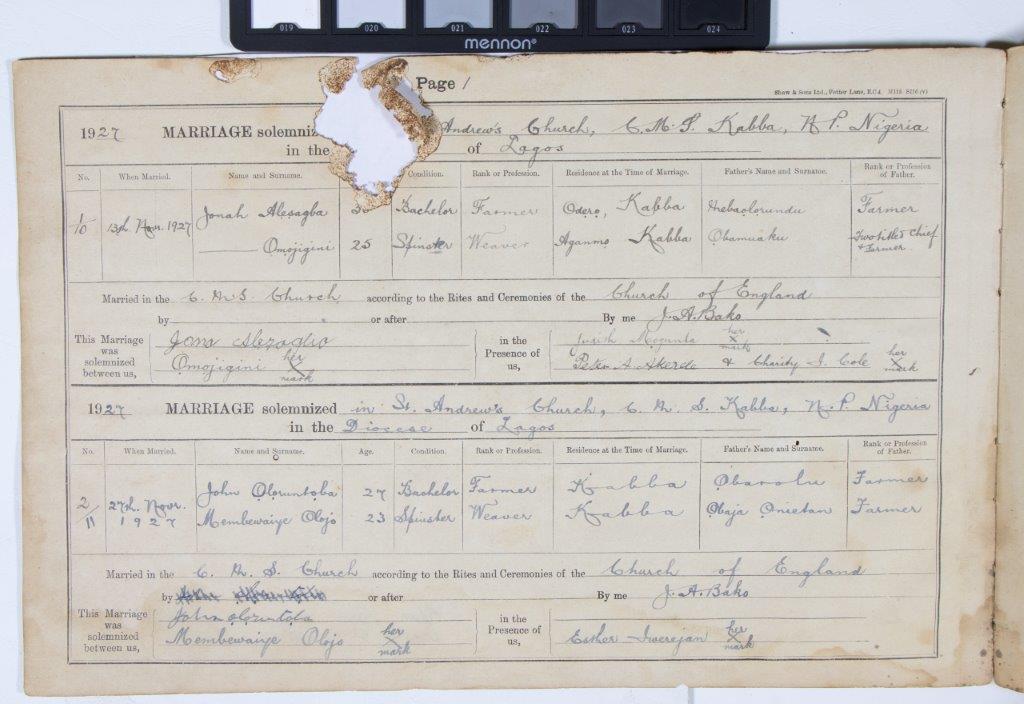 019 020 021 022 023 024
mennon®
Page 1
Shaw & Sons Ltd., Fetter Lane, E.C.4.
1927 MARRIAGE solemniz Andrew's Church, C.M.S. Kabba, N.P. Nigeria
in the of Lagos
No. When Married. Name and Surname. Condition. Rank or Profession. Residence at the Time of Marriage. Father's Name and Surname. Rank or Profession of Father.
1/10 13th Novr. 1927 Jonah Alesagba Bachelor Farmer Odero, Kabba Farmer
Omojigini 25 Spinster Weaver Aganmo Kabba Obamuaku Two titled Chief & Farmer
Married in the C. M. S. Church according to the Rites and Ceremonies of the Church of England
by or after By me J. A. Bako
This Marriage was solemnized between us, in the Presence of us, her mark
Omojigini her mark Peter A. & Charity I. Cole her mark
1927 MARRIAGE solemnized in St. Andrew's Church, C. M. S. Kabba, N. P. Nigeria
in the Diocese of Lagos
No. When Married. Name and Surname. Age. Condition. Rank or Profession. Residence at the Time of Marriage. Father's Name and Surname. Rank or Profession of Father.
2/11 27th Novr. 1927 John Oloruntoba 27 Bachelor Farmer Kabba Obarolu Farmer
Membewaiye Olojo 23 Spinster Weaver Kabba Obaja Onietan Farmer
Married in the C. M. S. Church according to the Rites and Ceremonies of the Church of England
by or after By me J. A. Bako
This Marriage was solemnized between us, John oloruntoba in the Presence of us,
Membewaiye Olojo her mark Esther Iwerejan her mark